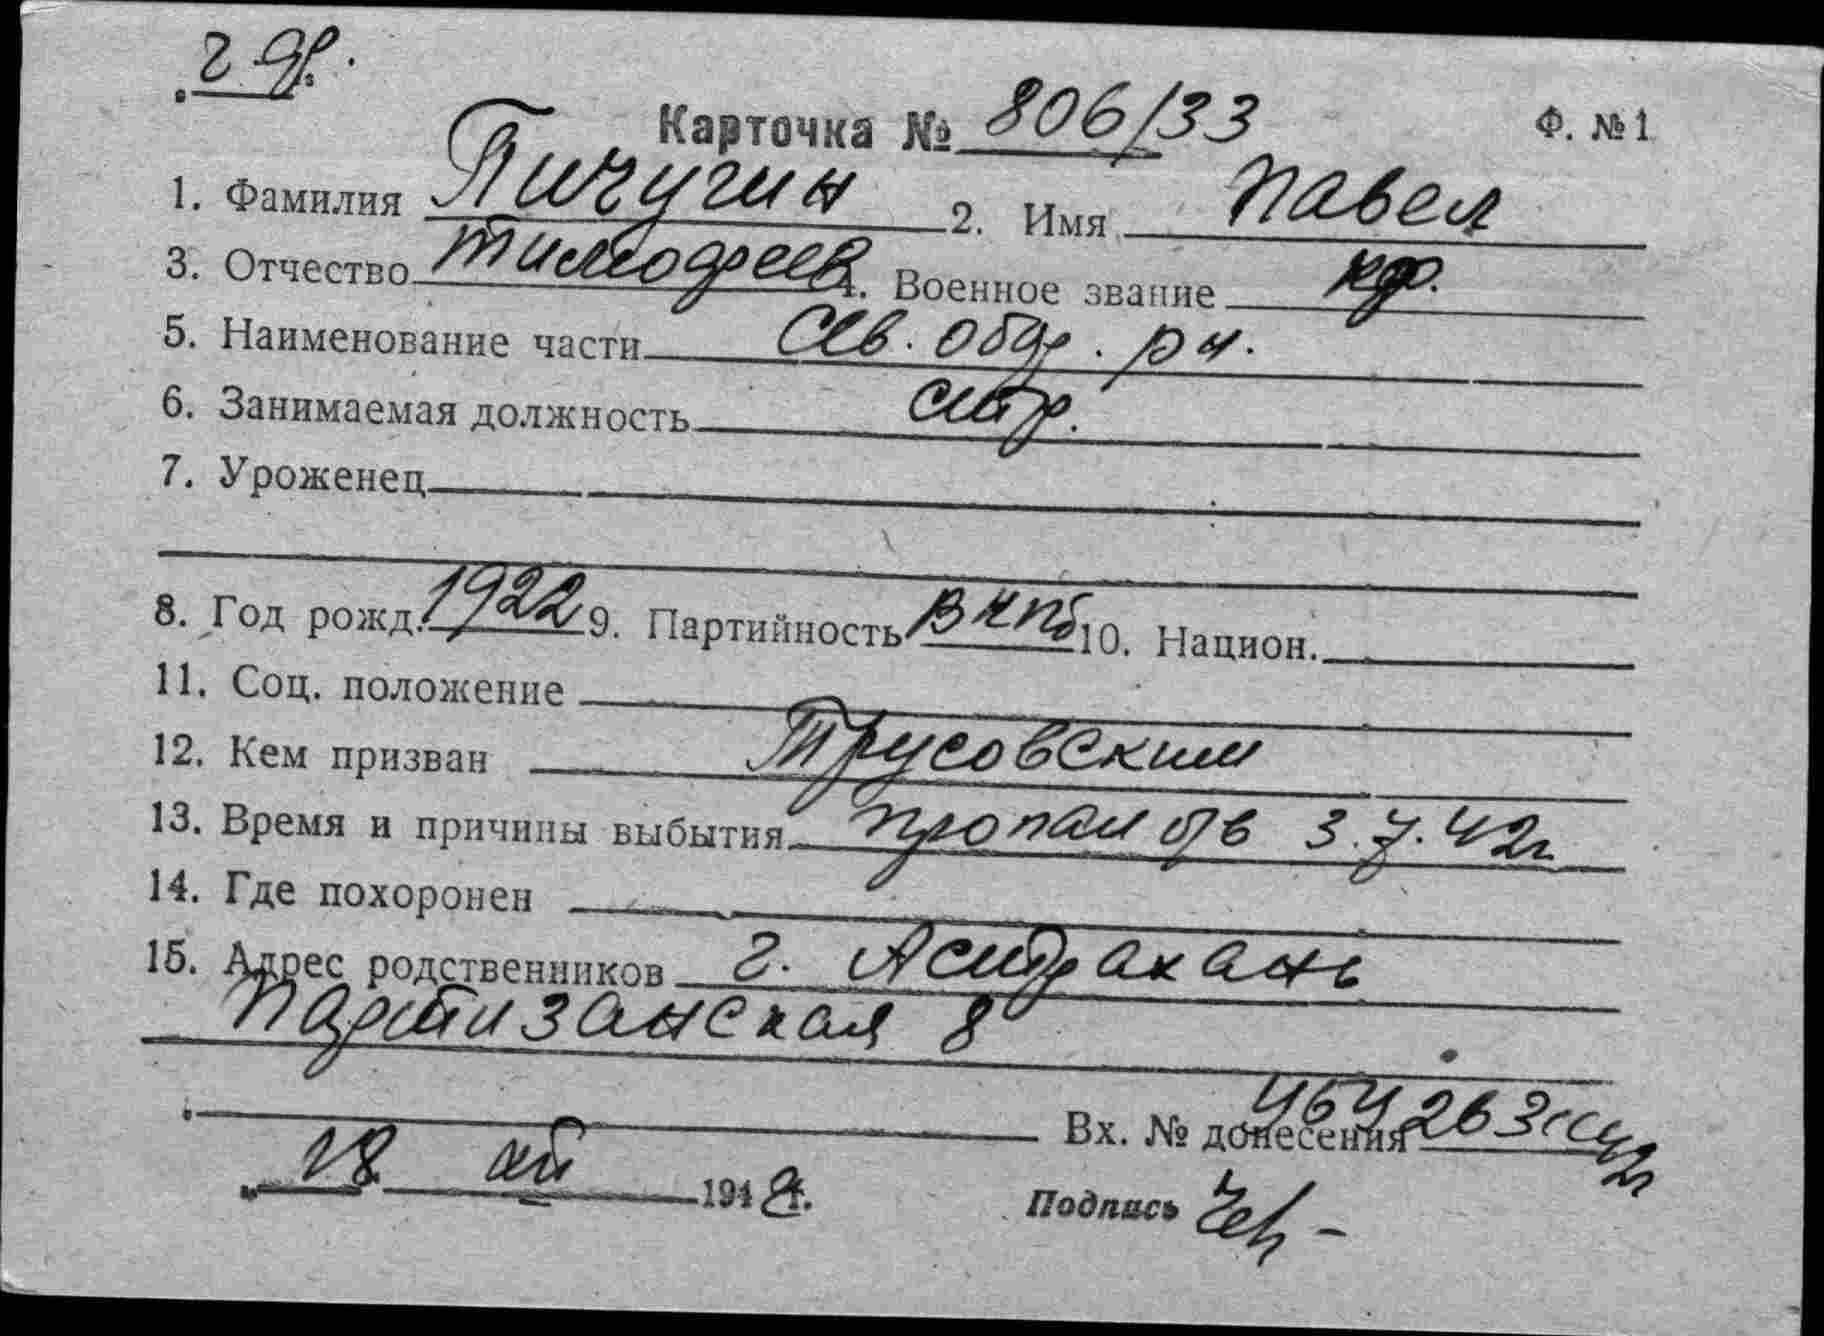 Карточка № 806/33 Ф. № 1
1. Фамилия Пичугин 2. Имя Павел
3. Отчество Тимофеев 4. Военное звание кф.
5. Наименование части Сев. обдр. рн.
6. Занимаемая должность стр.
7. Уроженец
8. Год рожд. 1922 9. Партийность ВКПб 10. Национ.
11. Соц. положение
12. Кем призван Трусовским
13. Время и причины выбытия пропал б/в 3.7.42г
14. Где похоронен
15. Адрес родственников г. Астрахань
Партизанская 8
Вх. № донесения
18 194 г.
Подпись